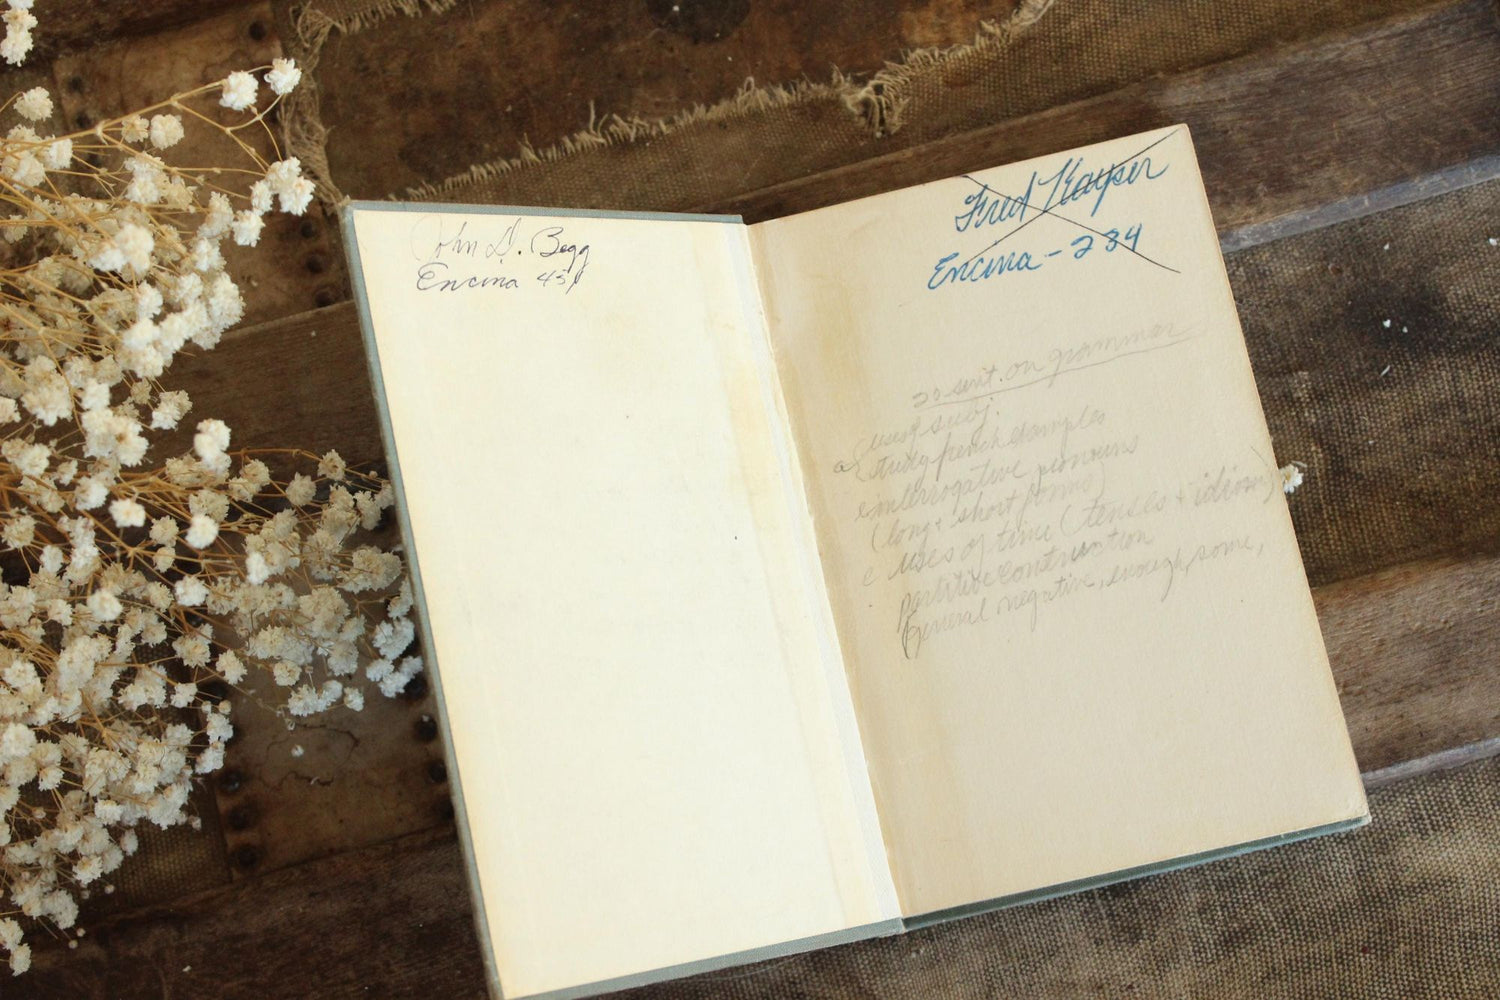 John D. Begg
Encina 451
Fred Kayser
Encina - 284
20 sent. on grammar
uses of subj.
a study french examples
interrogative pronouns
(long + short forms)
c uses of time (tenses + idiom)
partitive construction
General negative, enough, some,